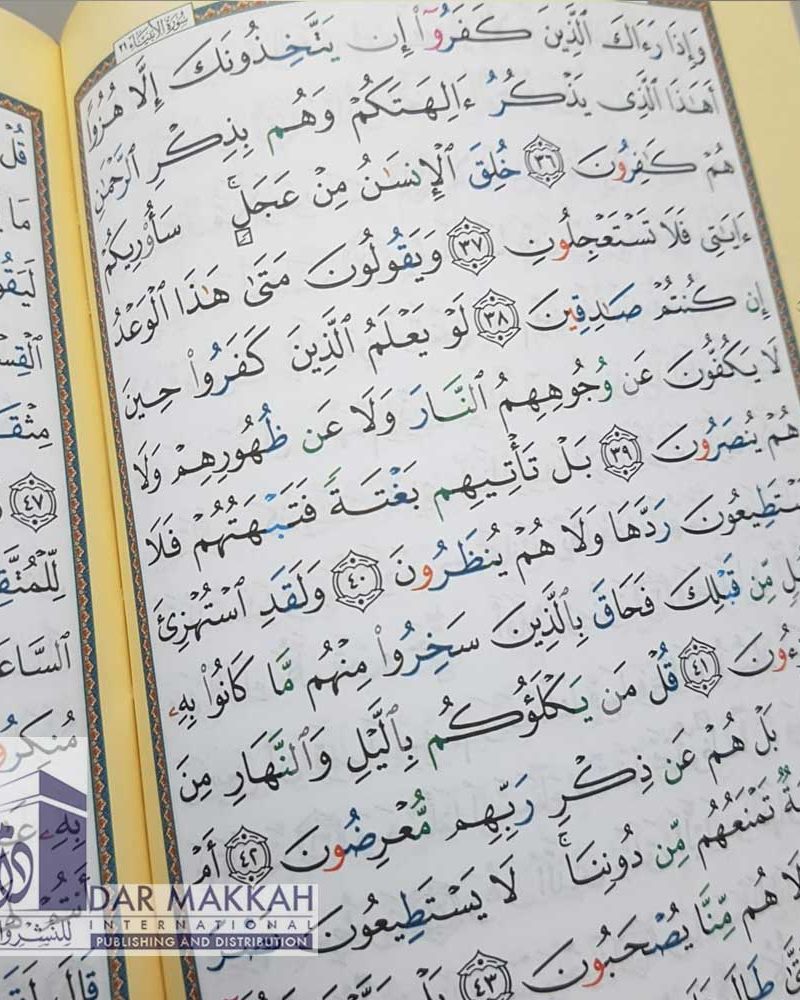 سُورَةُ الأَنبِيَاء ٢١
وَإِذَا رَءَاكَ ٱلَّذِينَ كَفَرُوٓا۟ إِن يَتَّخِذُونَكَ إِلَّا هُزُوًا
أَهَٰذَا ٱلَّذِى يَذْكُرُ ءَالِهَتَكُمْ وَهُم بِذِكْرِ ٱلرَّحْمَٰنِ
هُمْ كَٰفِرُونَ ٣٦ خُلِقَ ٱلْإِنسَٰنُ مِنْ عَجَلٍۚ سَأُو۟رِيكُمْ
ءَايَٰتِى فَلَا تَسْتَعْجِلُونِ ٣٧ وَيَقُولُونَ مَتَىٰ هَٰذَا ٱلْوَعْدُ
إِن كُنتُمْ صَٰدِقِينَ ٣٨ لَوْ يَعْلَمُ ٱلَّذِينَ كَفَرُوا۟ حِينَ
لَا يَكُفُّونَ عَن وُجُوهِهِمُ ٱلنَّارَ وَلَا عَن ظُهُورِهِمْ وَلَا
هُمْ يُنصَرُونَ ٣٩ بَلْ تَأْتِيهِم بَغْتَةً فَتَبْهَتُهُمْ فَلَا
سْتَطِيعُونَ رَدَّهَا وَلَا هُمْ يُنظَرُونَ ٤٠ وَلَقَدِ ٱسْتُهْزِئَ
لٍ مِّن قَبْلِكَ فَحَاقَ بِٱلَّذِينَ سَخِرُوا۟ مِنْهُم مَّا كَانُوا۟ بِهِۦ
ءُونَ ٤١ قُلْ مَن يَكْلَؤُكُم بِٱلَّيْلِ وَٱلنَّهَارِ مِنَ
بَلْ هُمْ عَن ذِكْرِ رَبِّهِم مُّعْرِضُونَ ٤٢ أَمْ
ةٌ تَمْنَعُهُم مِّن دُونِنَاۚ لَا يَسْتَطِيعُونَ نَصْرَ
لَا هُم مِّنَّا يُصْحَبُونَ ٤٣ بَلْ
طَالَ
قُلْ
مَا
ٱلْقِسْ
مِثْقَا
٤٧
لِّلْمُتَّقِ
ٱلسَّاعَ
مُنكِرُو
قَالَ لَقَ
DAR MAKKAH
INTERNATIONAL
PUBLISHING AND DISTRIBUTION